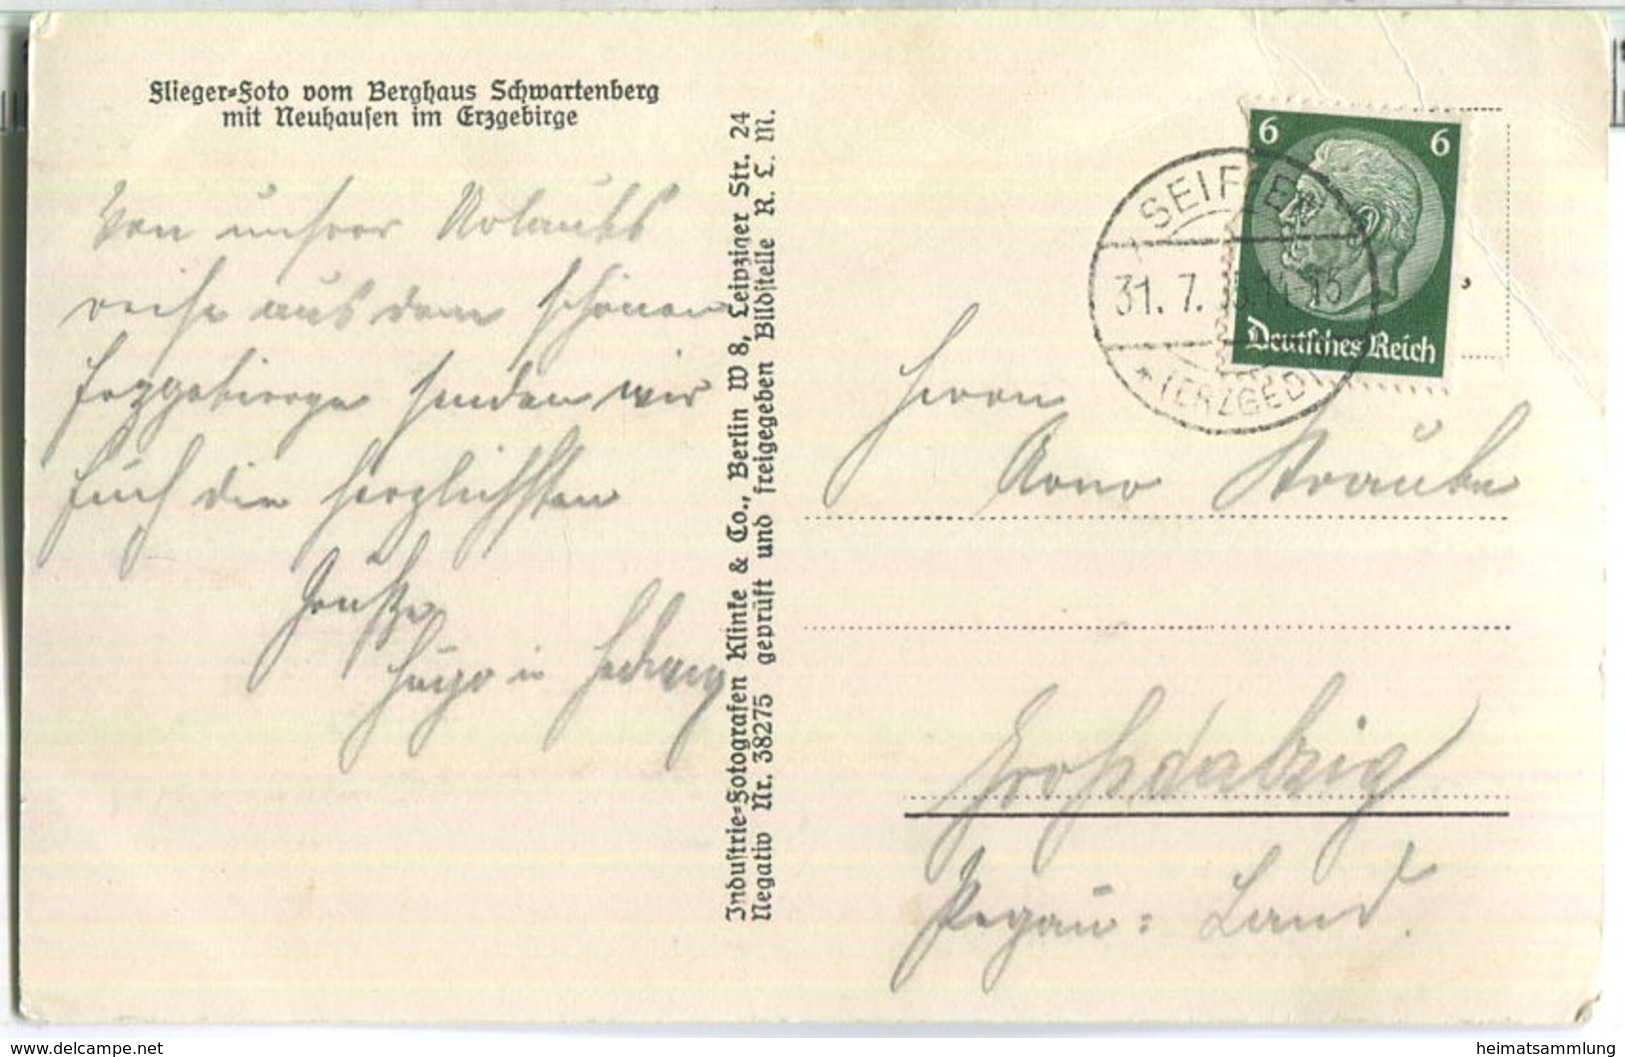 Flieger=Foto vom Berghaus Schwartenberg
mit Neuhausen im Erzgebirge
Von unsrer Urlaubs
reise aus dem schönen
Erzgebirge senden wir
Euch die herzlichsten
Grüße
Hugo u Hedwig
Industrie=Fotografen Klinke & Co., Berlin W 8, Leipziger Str. 24
Negativ Nr. 38275 geprüft und freigegeben Bildstelle R. L. M.
6 6
Deutsches Reich
SEIFFEN
31. 7.
(ERZGEB)
Herrn
Arno Straube
Großdalzig
Pegau=Land.
www.delcampe.net
heimatsammlung